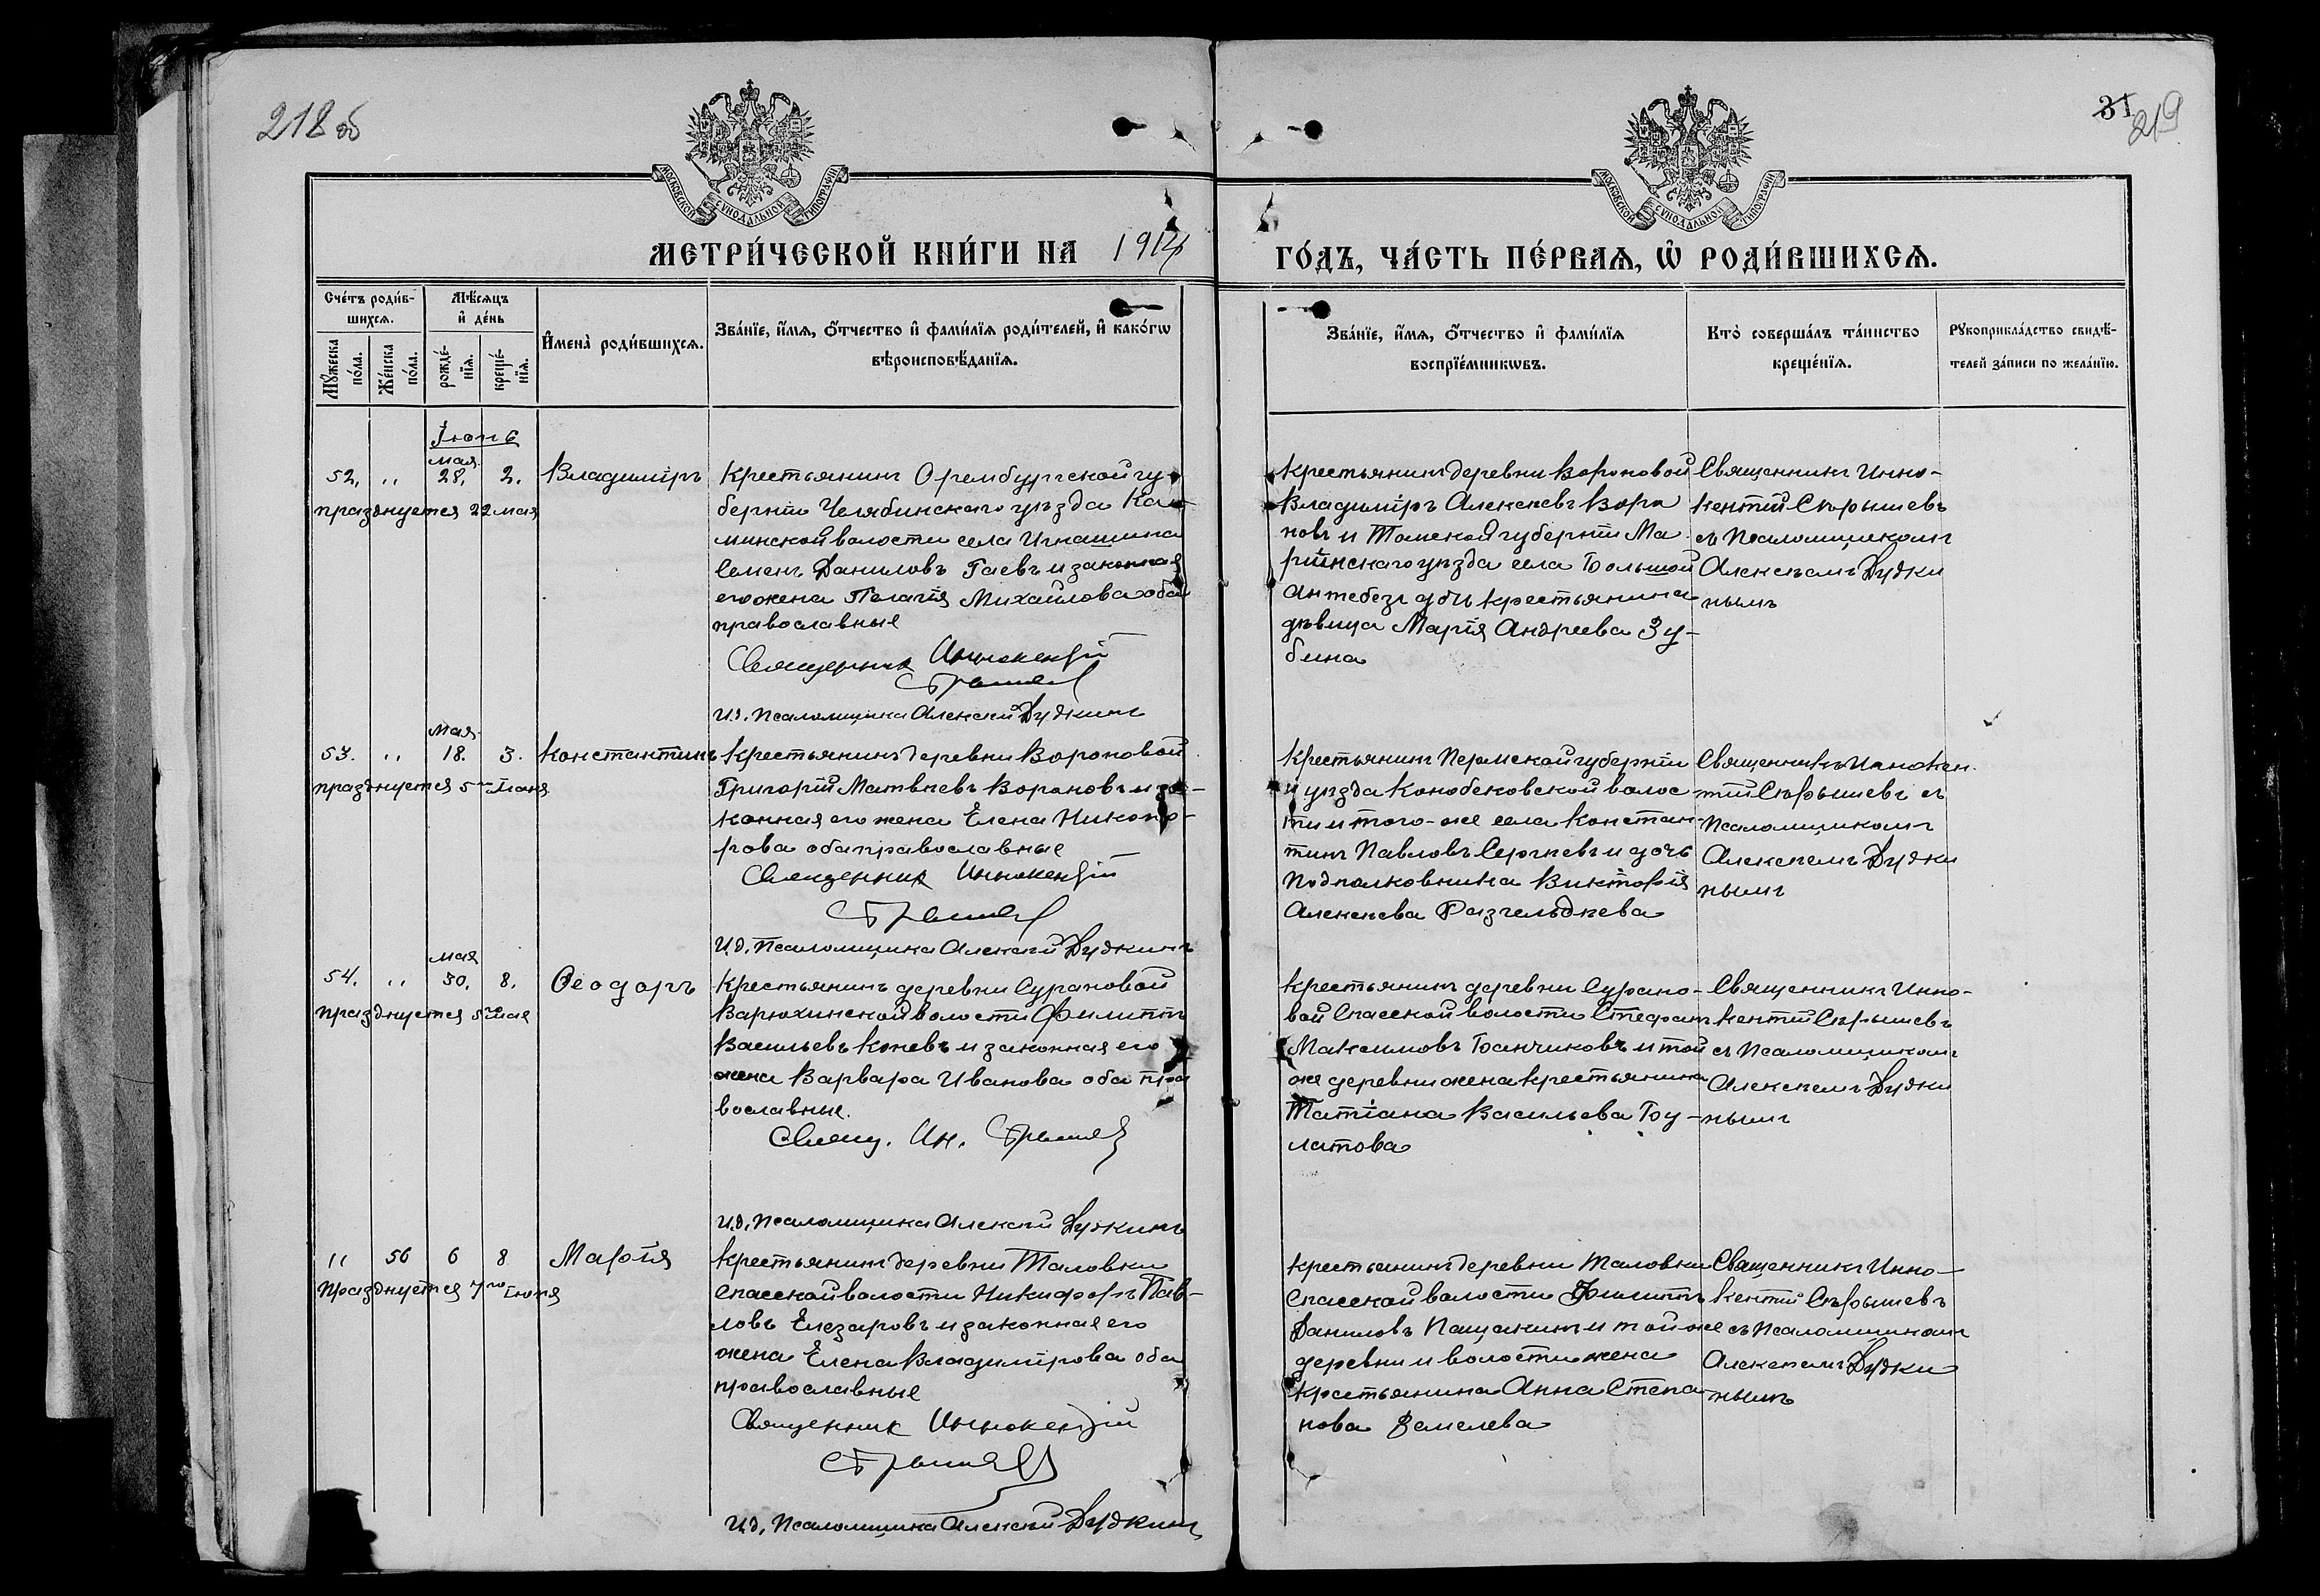 218 об
31
219
МОСКОВСКОЙ СУНОДАЛЬНОЙ ТИПОГРАФІИ
МОСКОВСКОЙ СУНОДАЛЬНОЙ ТИПОГРАФІИ
МЕТРИ́ЧЕСКОЙ КНИ́ГИ НА 1914
ГО́ДЪ, ЧА́СТЬ ПЕ́РВАѦ, Ѡ҆ РОДИ́ВШИХСѦ.
Сче́тъ роди́в-
шихсѧ.
Мꙋ́жеска
по́ла.
Же́нска
по́ла.
Мѣ́сѧцъ
и҆ де́нь
рожде́-
нїѧ.
креще́-
нїѧ.
И҆мена̀ роди́вшихсѧ.
Зва́нїе, и҆́мѧ, ѻ҆́тчество и҆ фами́лїѧ роди́телей, и҆ како́гѡ
вѣроисповѣ́данїѧ.
Зва́нїе, и҆́мѧ, ѻ҆́тчество и҆ фами́лїѧ
воспрїе́мникѡвъ.
Кто̀ соверша́лъ та́инство
креще́нїѧ.
Рꙋкоприкла́дство свидѣ́-
телей за́писи по жела́нїю.
Іюнь
мая
52. ,, 28. 2. Владиміръ
празднуется 22 мая
Крестьянинъ Оренбургской гу
берніи Челябинскаго уѣзда Ка-
минской волости села Игнашина
Семенъ Даниловъ Гаевъ и законная
его жена Пелагія Михайлова оба
православные
Священник Иннокентій
И.д. Псаломщика Алексѣй Дудкинъ
Крестьянинъ деревни Вороновой
Владиміръ Алексѣевъ Воро
новъ и Томской губерніи Ма-
ріинскаго уѣзда села Большой
Антебезъ дочь крестьянина
дѣвица Марія Андреева Зу-
бина
Священникъ Инно-
кентій Сѣрышевъ
съ Псаломщикомъ
Алексѣемъ Дудки
нымъ
мая
53. ,, 18. 3. Константинъ
празднуется 5го Іюня
Крестьянинъ деревни Вороновой
Григорій Матвѣевъ Вороновъ и за-
конная его жена Елена Никоно-
рова оба православные
Священник Иннокентій
И.д. Псаломщика Алексѣй Дудкинъ
Крестьянинъ Пермской губерніи
и уѣзда Конобековской волос-
ти и того-же села Констан-
тинъ Павловъ Сергѣевъ и дочь
Подполковника Викторія
Алексѣева
Священникъ Иннокен-
тій Сѣрышевъ съ
Псаломщикомъ
Алексѣемъ Дудки
нымъ
мая
54. ,, 30. 8. Ѳеодоръ
празднуется
Крестьянинъ деревни Сурановой
Варюхинской волости Филиппъ
Васильевъ Коневъ и законная его
жена Варвара Иванова оба пра
вославные.
Свящ. Ин.
И.д. Псаломщика Алексѣй Дудкинъ
Крестьянинъ деревни Сурано-
вой Спасской волости Стефанъ
Максимовъ Банчиковъ и той
же деревни жена крестьянина
Татіана Васильева Бу-
латова
Священникъ Инно-
кентій Сѣрышевъ
съ Псаломщикомъ
Алексѣемъ Дудки
нымъ
,, 56 6 8 Марія
Празднуется 7го Іюня
Крестьянинъ деревни Таловки
Спасской волости Никифоръ Пав-
ловъ Елезаровъ и законная его
жена Елена Владимірова оба
православные
Священник Иннокентій
И.д. Псаломщика Алексѣй Дудкинъ
Крестьянинъ деревни Таловки
Спасской волости Филиппъ
Даниловъ Пащакинъ и той же
деревни и волости жена
крестьянина Анна Степа
нова Земелева
Священникъ Инно-
кентій Сѣрышевъ
съ Псаломщикомъ
Алексѣемъ Дудки
нымъ